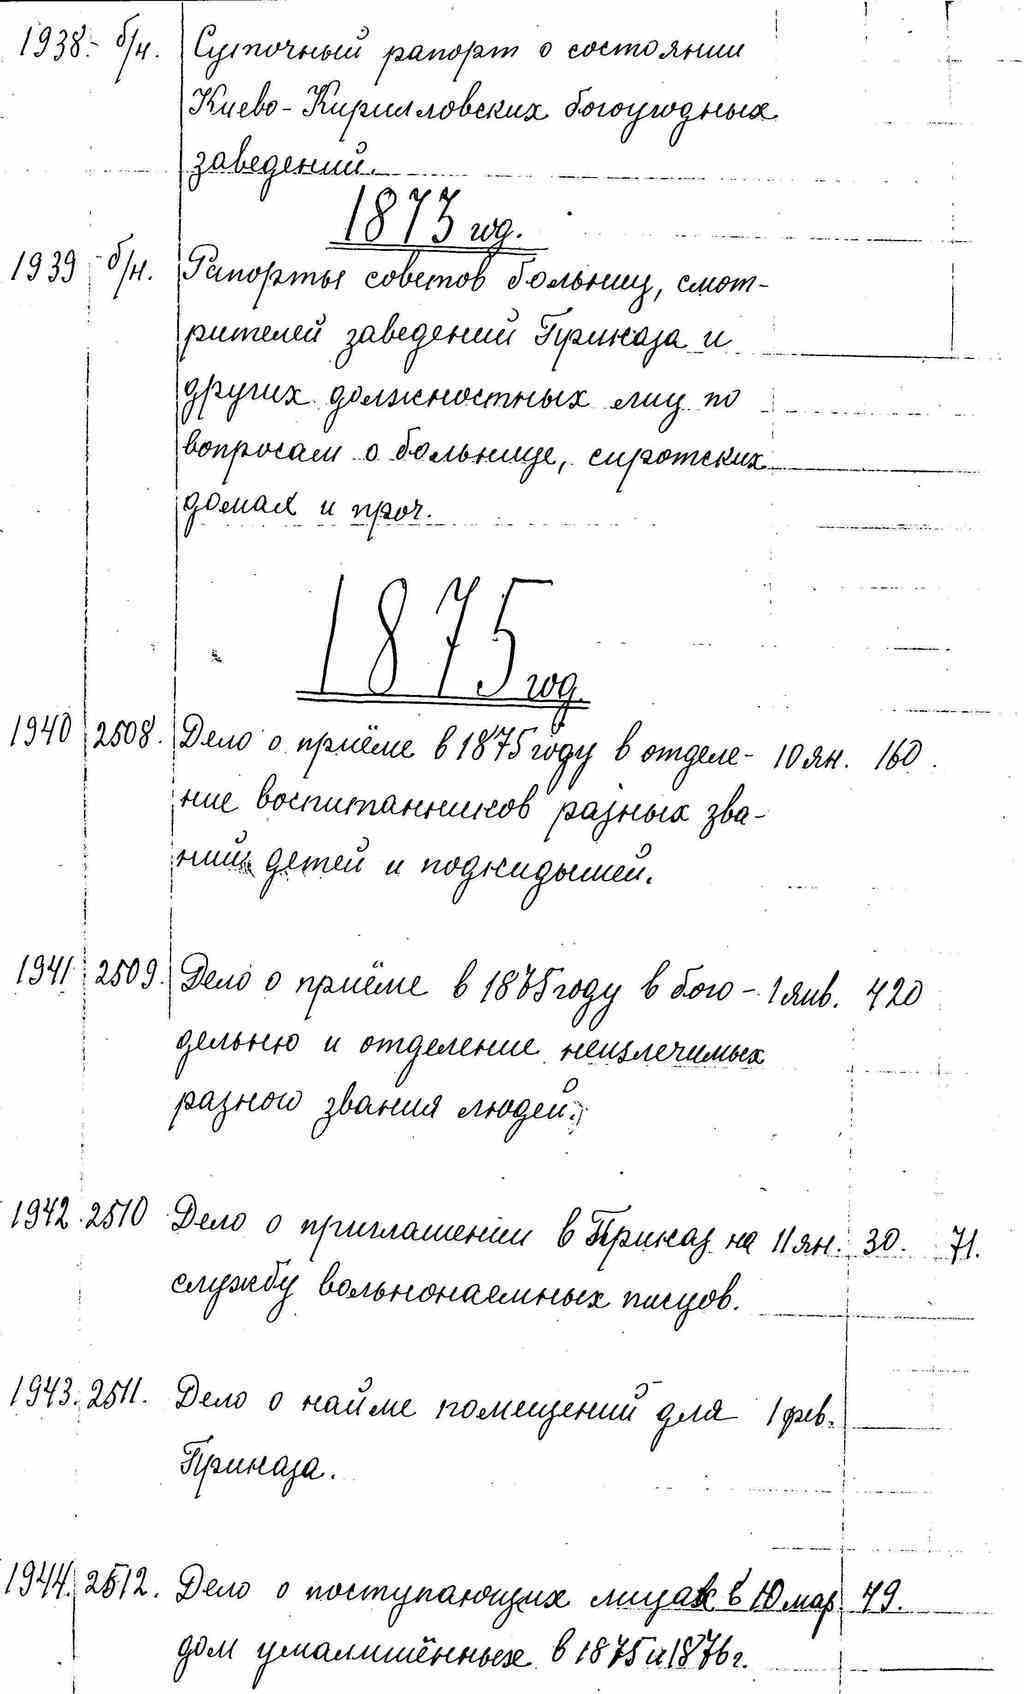 1938.- б/н. Суточный рапорт о состоянии
Киево-Кирилловских богоугодных
заведений.
1873 год.
1939 - б/н. Рапорты советов больниц, смот-
рителей заведений Приказа и
других должностных лиц по
вопросам о больнице, сиротских
домах и проч.
1875 год.
1940 2508. Дело о приёме в 1875 году в отделе- 10 ян. 160.
ние воспитанников разных зва-
ний детей и подкидышей.
1941 2509. Дело о приёме в 1875 году в бого- 1 янв. 420
дельню и отделение неизлечимых
разного звания людей.
1942. 2510 Дело о приглашении в Приказ на 11 ян. 30. 71.
службу вольнонаемных писцов.
1943. 2511. Дело о найме помещений для 1 фев.
Приказа.
1944. 2512. Дело о поступающих лицах в 10 мар. 49.
дом умалишённых в 1875 и 1876 г.